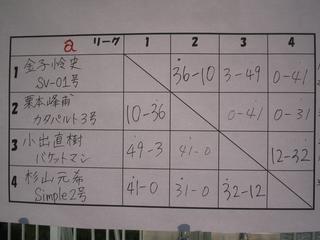 a リーグ 1 2 3 4
1 金子怜史 36-10 3-49 0-41
SV-01号
2 栗本峰甫 10-36 0-41 0-31
カタパルト3号
3 小出直樹 49-3 41-0 12-32
バケットマン
4 杉山元希 41-0 31-0 32-12
Simple2号